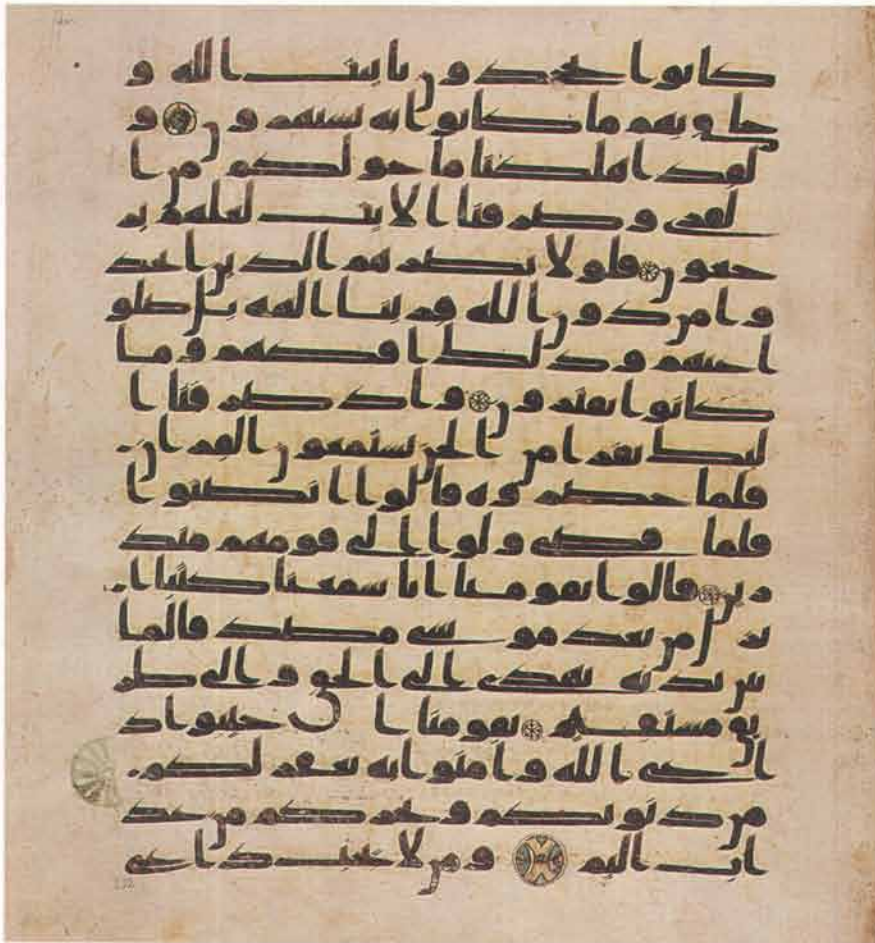 كانوا يجحدون بايت الله و
حاق بهم ما كانوا به يستهزون و
لقد اهلكنا ما حولكم من ا
لقرى وصرفنا الايت لعلهم ير
جعون فلولا نصرهم الذين اتخذ
وا من دون الله قربنا الهه بل ضلو
ا عنهم وذلك افكهم وما
كانوا يفترون واذ صرفنا ا
ليك نفرا من الجن يستمعون القران
فلما حضروه قالوا انصتوا
فلما قضى ولوا الى قومهم منذ
رين قالوا يقومنا انا سمعنا كتبا ا
نزل من بعد موسى مصدقا لما
بين يديه يهدى الى الحق والى طر
يق مستقيم يقومنا اجيبوا د
اعى الله وامنوا به يغفر لكم
من ذنوبكم ويجركم من عذ
اب اليم ومن لا يجب داعى